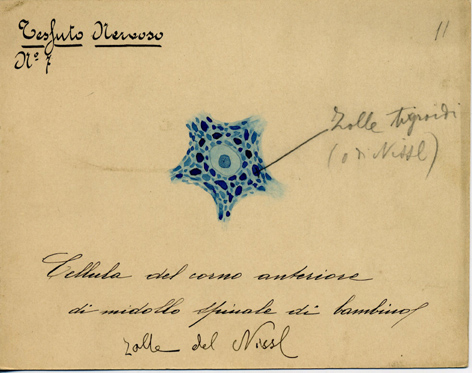 Tessuto Nervoso
Nº 7
11
Zolle tigroidi
(o di Nissl)
Cellula del corno anteriore
di midollo spinale di bambino
Zolle del Nissl